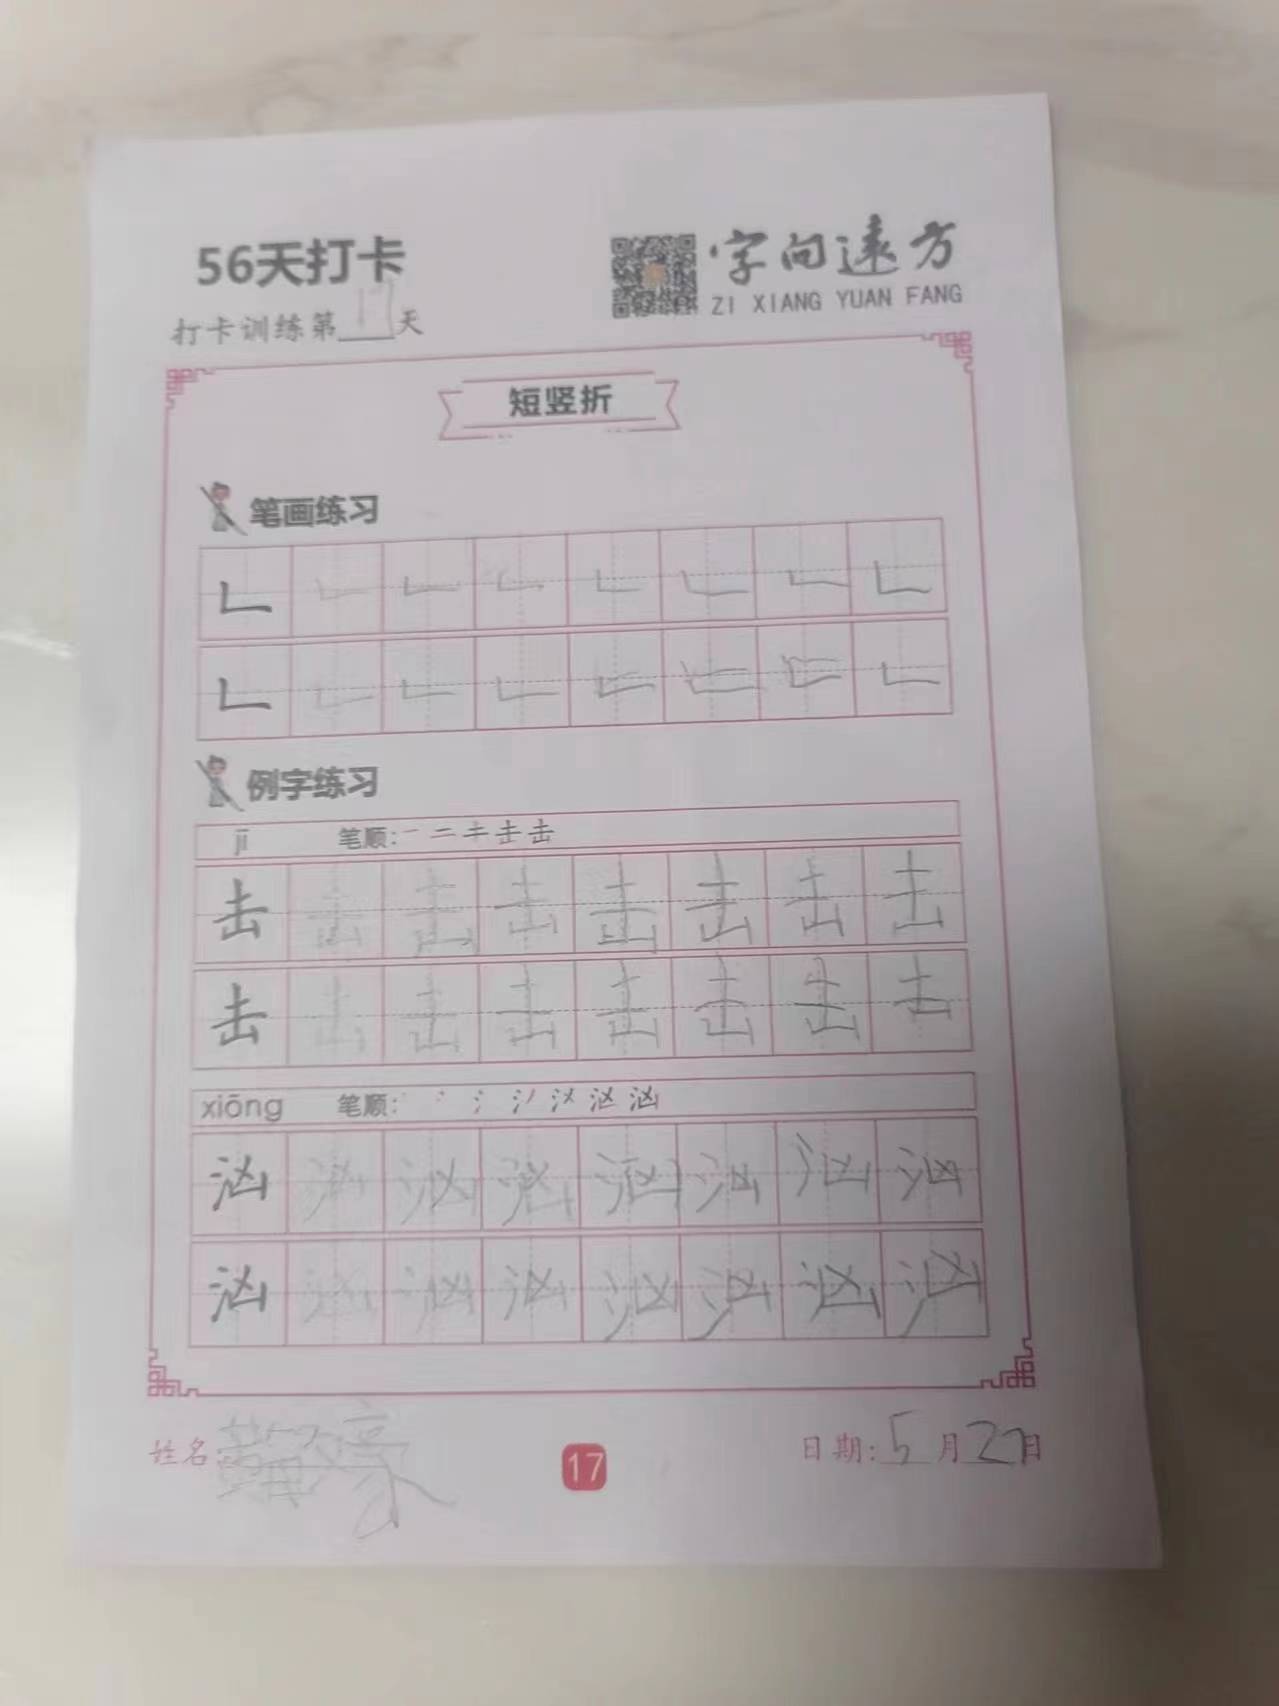 56天打卡
字向遠方
ZI XIANG YUAN FANG
打卡训练第17天
短竖折
笔画练习
例字练习
jī 笔顺: 击
击 击 击 击 击 击 击 击
击 击 击 击 击 击 击 击
xiōng 笔顺: 汹
汹 汹 汹 汹 汹 汹 汹 汹
汹 汹 汹 汹 汹 汹 汹 汹
姓名: 豪
17
日期: 5月27日